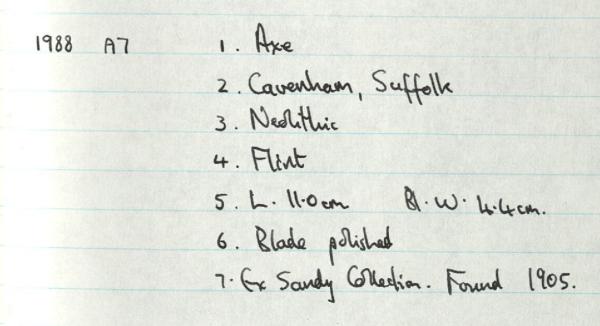 1988 A7 1. Axe
2. Cavenham, Suffolk
3. Neolithic
4. Flint
5. L. 11.0cm Bl. W. 4.4cm.
6. Blade polished
7. Ex Sandy Collection. Found 1905.